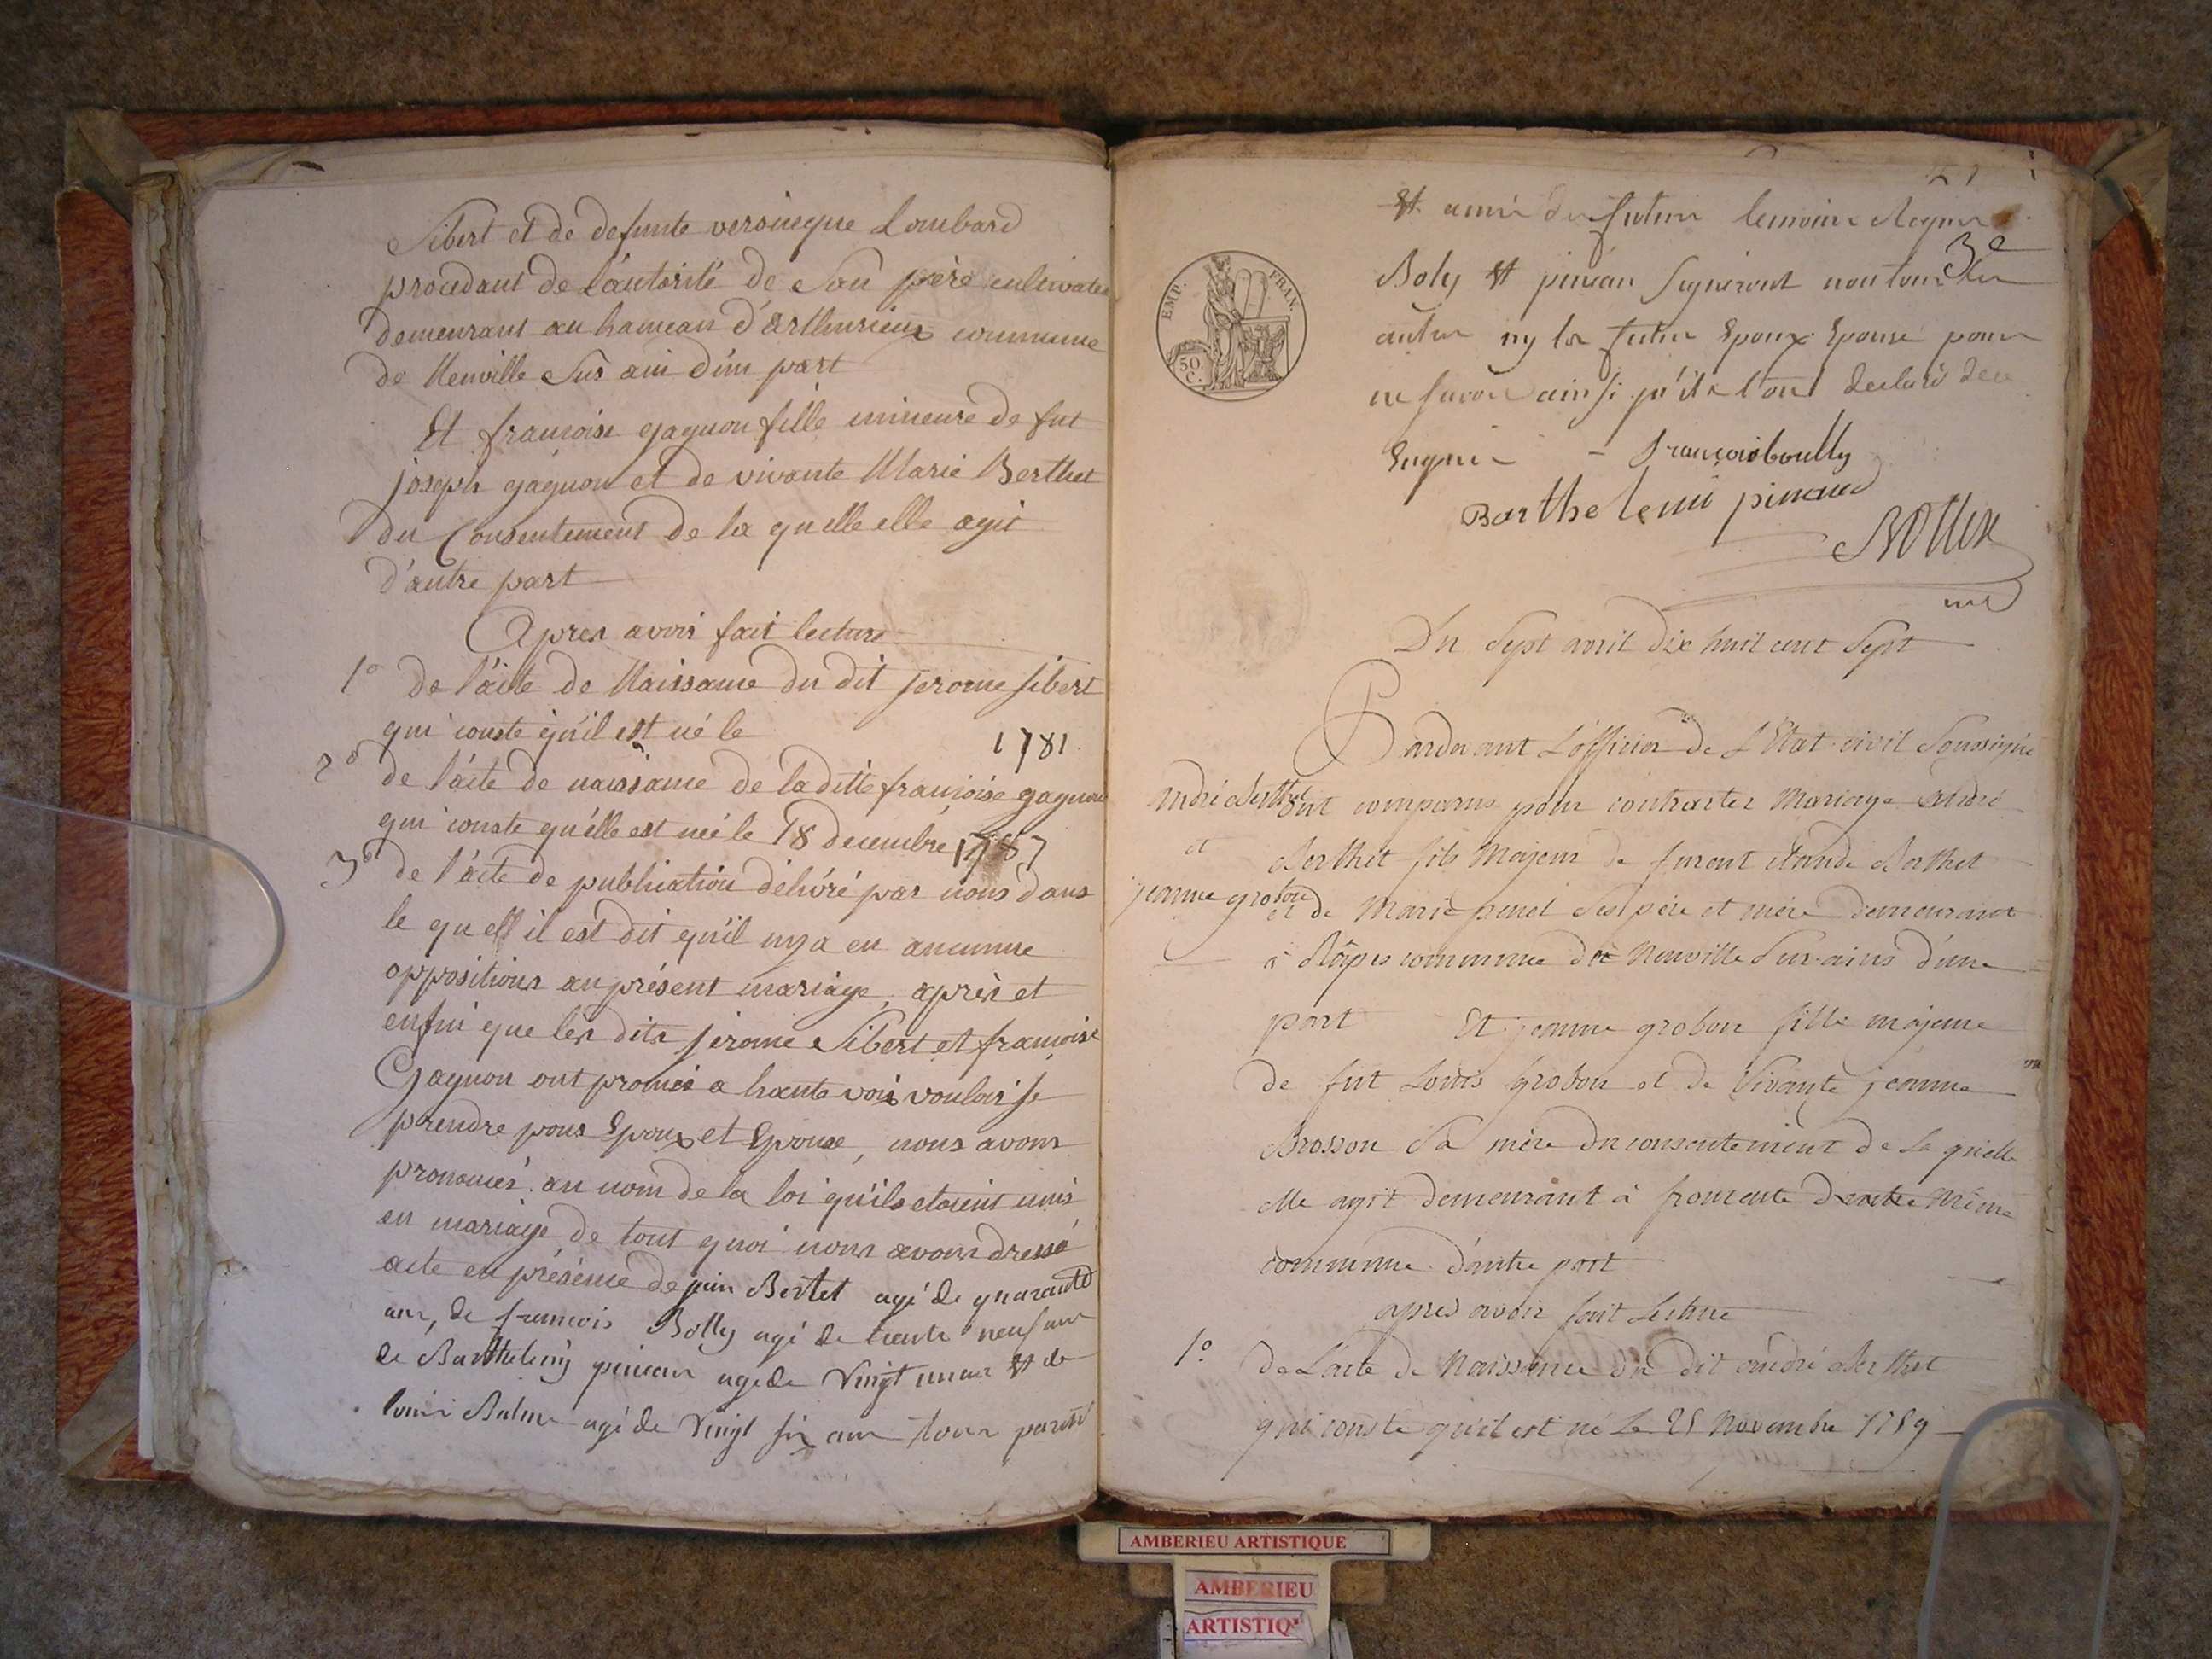 Sibert et de defunte veronique Lombard
procedant de l'autorité de son père cultivateur
demeurant au hameau d'arthurieux commune
de Neuville sur ain d'un part
Et francoise gagnon fille mineure de fut
joseph gagnon et de vivante Marie Berthet
du Consentement de la quelle elle agit
d'autre part
Apres avoir fait lecture
1° de l'acte de Naissance du dit jerome sibert
qui conste qu'il est né le 1781.
2° de l'acte de naissance de la ditte francoise gagnon
qui conste qu'elle est né le 18 decembre 1787
3° de l'acte de publication délivré par nous dans
le quell il est dit qu'il ny a eu aucunne
oppositions au présent mariage, après et
enfin que les dits jérome Sibert et francoise
Gagnon ont promis a haute voix vouloir se
prendre pour Epoux et Epouse, nous avons
prononcés au nom de la loi qu'ils etoient unis
en mariage de tout quoi nous avons dressé
acte en présence de jean Bertet agé de quarante
ans, de francois Bolly agé de trente neuf ans
de Barthelemy pinean age de Vingt un an et de
louis Balme agé de Vingt six ans tous parents
21
Et amis du futur lemoins
3e
Boly et pinean Signeront non tous les
autres ny les futur Epoux Epouse pour
ne savoir ainsi qu'ils l'ont declaré de ce
Enquis - françois boully
Barthelemi pinaud
EMP. FRAN.
50 C.
Du Sept avril dix huit cent Sept
Pardevant L'officier de L'Etat civil Soussigné
André Berthet
et
jeanne grobon
ont comparus pour contracter Mariage andré
Berthet fils Majeur de furent claude Berthet
et de Marie penet Ses père et mère demeurant
à Râpes commune de Neuville Sur ains d'une
part Et jeanne grobon fille majeure
de fut Louis grobon et de Vivante jeanne
Brosson Sa mère du consentement de La quelle
elle agit demeurant à fromente même
commune d'autre part
apres avoir fait Lecture
1° de L'acte de Naissance du dit andré Berthet
qui conste qu'il est né Le 25 Novembre 1759
AMBERIEU ARTISTIQUE
AMBERIEU
ARTISTIQ